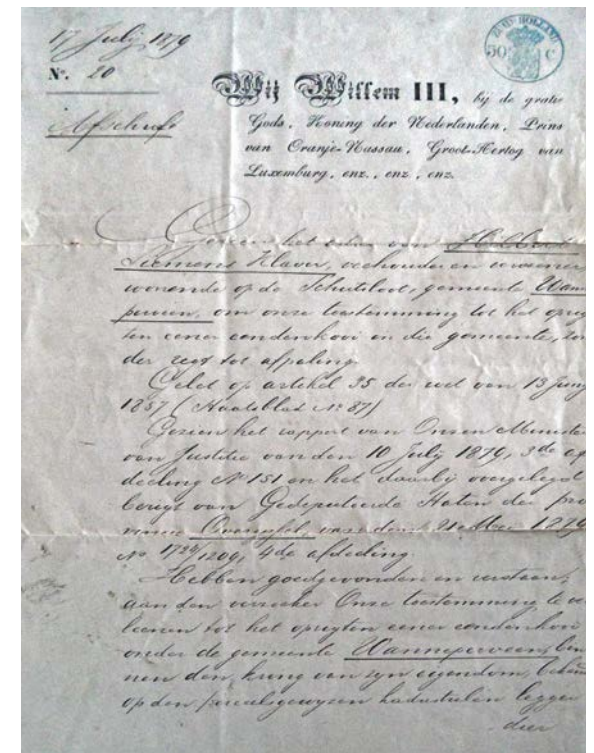 17 July 1879
ZUID-HOLLAND
50 C
No. 20
Afschrift
Wij Willem III, bij de gratie
Gods, Koning der Nederlanden, Prins
van Oranje-Nassau, Groot-Hertog van
Luxemburg, enz., enz., enz.
Gezien het adres van
Siemens Klaver, veehouder en
wonende op de Schutsloot, gemeente Wann
perveen, om onze toestemming tot het oprig
ten eener eendenkooi in die gemeente, zon
der regt tot afpaling.
Gelet op artikel 35 der wet van 13 Juny
1857 (Staatsblad No 87)
Gezien het rapport van Onzen Minister
van Justitie van den 10 July 1879, 3de af
deeling No 151 en het daarbij overgelegd
berigt van Gedeputeerde Staten der pro
vincie Overijssel, van den 21 Mei 1879
No 1724/1204, 4de afdeeling.
Hebben goedgevonden en verstaan,
aan den verzoeker Onze toestemming te ve
leenen tot het oprigten eener eendenkooi
onder de gemeente Wanneperveen, bin
nen den kring van zyn eigendom, beken
op den perceelsgewyzen kadastralen legger
dier